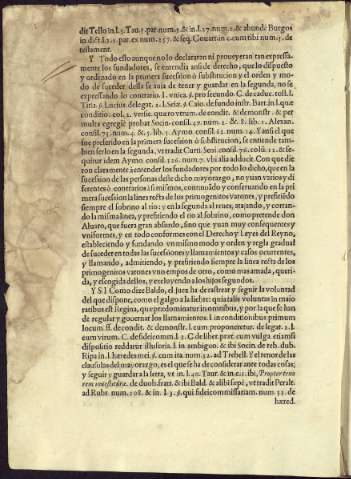 dit Tello in l.5. Tau. 5. par. num. 5. & in l.27. num. 2. & abundè Burgos
in dict. l. 5. par. ex num. 257. & seq. Couar. in c. cum tibi num. 5. de
testament.
Y Todo esto aunque no lo declararan ni proueyeran tan expressa-
mente los fundadores, se entendia assi de derecho, que lo dispuesto
y ordenado en la primera sucesion ò substitucion y el orden y mo-
do de suceder desta se auia de tener y guardar en la segunda, no se
expressando lo contrario. l. vnica §. pro secundo C. de caduc. toll. l.
Titia §. Lucius delegat. 2. l. Seia. §. Caio. de fundo instr. Bart. in l. quæ
conditio. col. 2. versic. quarto vtrum. de condit. & demonstr. & per
multa egregiè probat Socin. consil. 47. num. 2. & 8. lib. 1. Alexan.
consil. 75. num. 4. & 5. lib. 5. Aymo. consil. 62. num. 14. Y ansi el que
fue preferido en la primera sucesion ò substitucion, se entiende tam-
bien serlo en la segunda, vt tradit Curti. Seni. consil. 76. colū. 12. & se-
quitur idem Aymo. consil. 126. num. 7. vbi alia adducit. Con que die
ron claramente à entender los fundadores por todo lo dicho, que en la
sucesion de las personas deste dicho mayorazgo, no yuan varios y di
ferentes ò contrarios à si mismos, continuādo y conseruando en la pri
mera sucesion la linea recta de los primogenitos varones, y prefiriendo
siempre el sobrino al tio: y en la segunda al reues, atajando, y cortan-
do la misma linea, y prefiriendo el tio al sobrino, como pretende don
Aluaro, que fuera gran absurdo, sino que yuan muy consequentes y
vniformes, y en todo conformes con el Derecho y Leyes del Reyno,
estableciendo y fundando vn mismo modo y orden y regla gradual
de suceder en todas las sucesiones y llamamientos y casos ocurrentes,
y llamando, admitiendo, y prefiriendo siempre la linea recta de los
primogenitos varones vno empos de otro, como mas amada, queri-
da, y escogida dellos, y excluyendo a los hijos segundos.
Y S I Como dize Baldo, el jura ha de rastrear y seguir la voluntad
del que dispone, como el galgo a la liebre: quia talis voluntas in maio
ratibus est Regina, que predominatur in omnibus, y por la que se han
de regular y gouernar los llamamientos. l. in conditionibus primum
locum. ff. de condit. & demonstr. l. cum proponeretur. de legat. 2. l.
cum virum. C. de fideicom. l. 2. C. de liber. præt. cum vulga. etiamsi
dispositio redderet illusoria. l. in ambiguo. & ibi Socin. de reb. dub.
Ripa in l. hæredes mei §. cum ita num. 32. ad Trebell. Y el tenor de las
clausulas del mayorazgo, es el que se ha de considerar ante todas cosas,
y seguir y guardar a la letra, vt in l. 40. Taur. & in c. 1. ibi, Propter teno
rem inuestituræ. de duob. frat. & ibi Bald. & alibi sepè, vt tradit Peralt.
ad Rubr. num. 108. & in l. 3. §. qui fideicommissariam. num. 33. de
hæred.